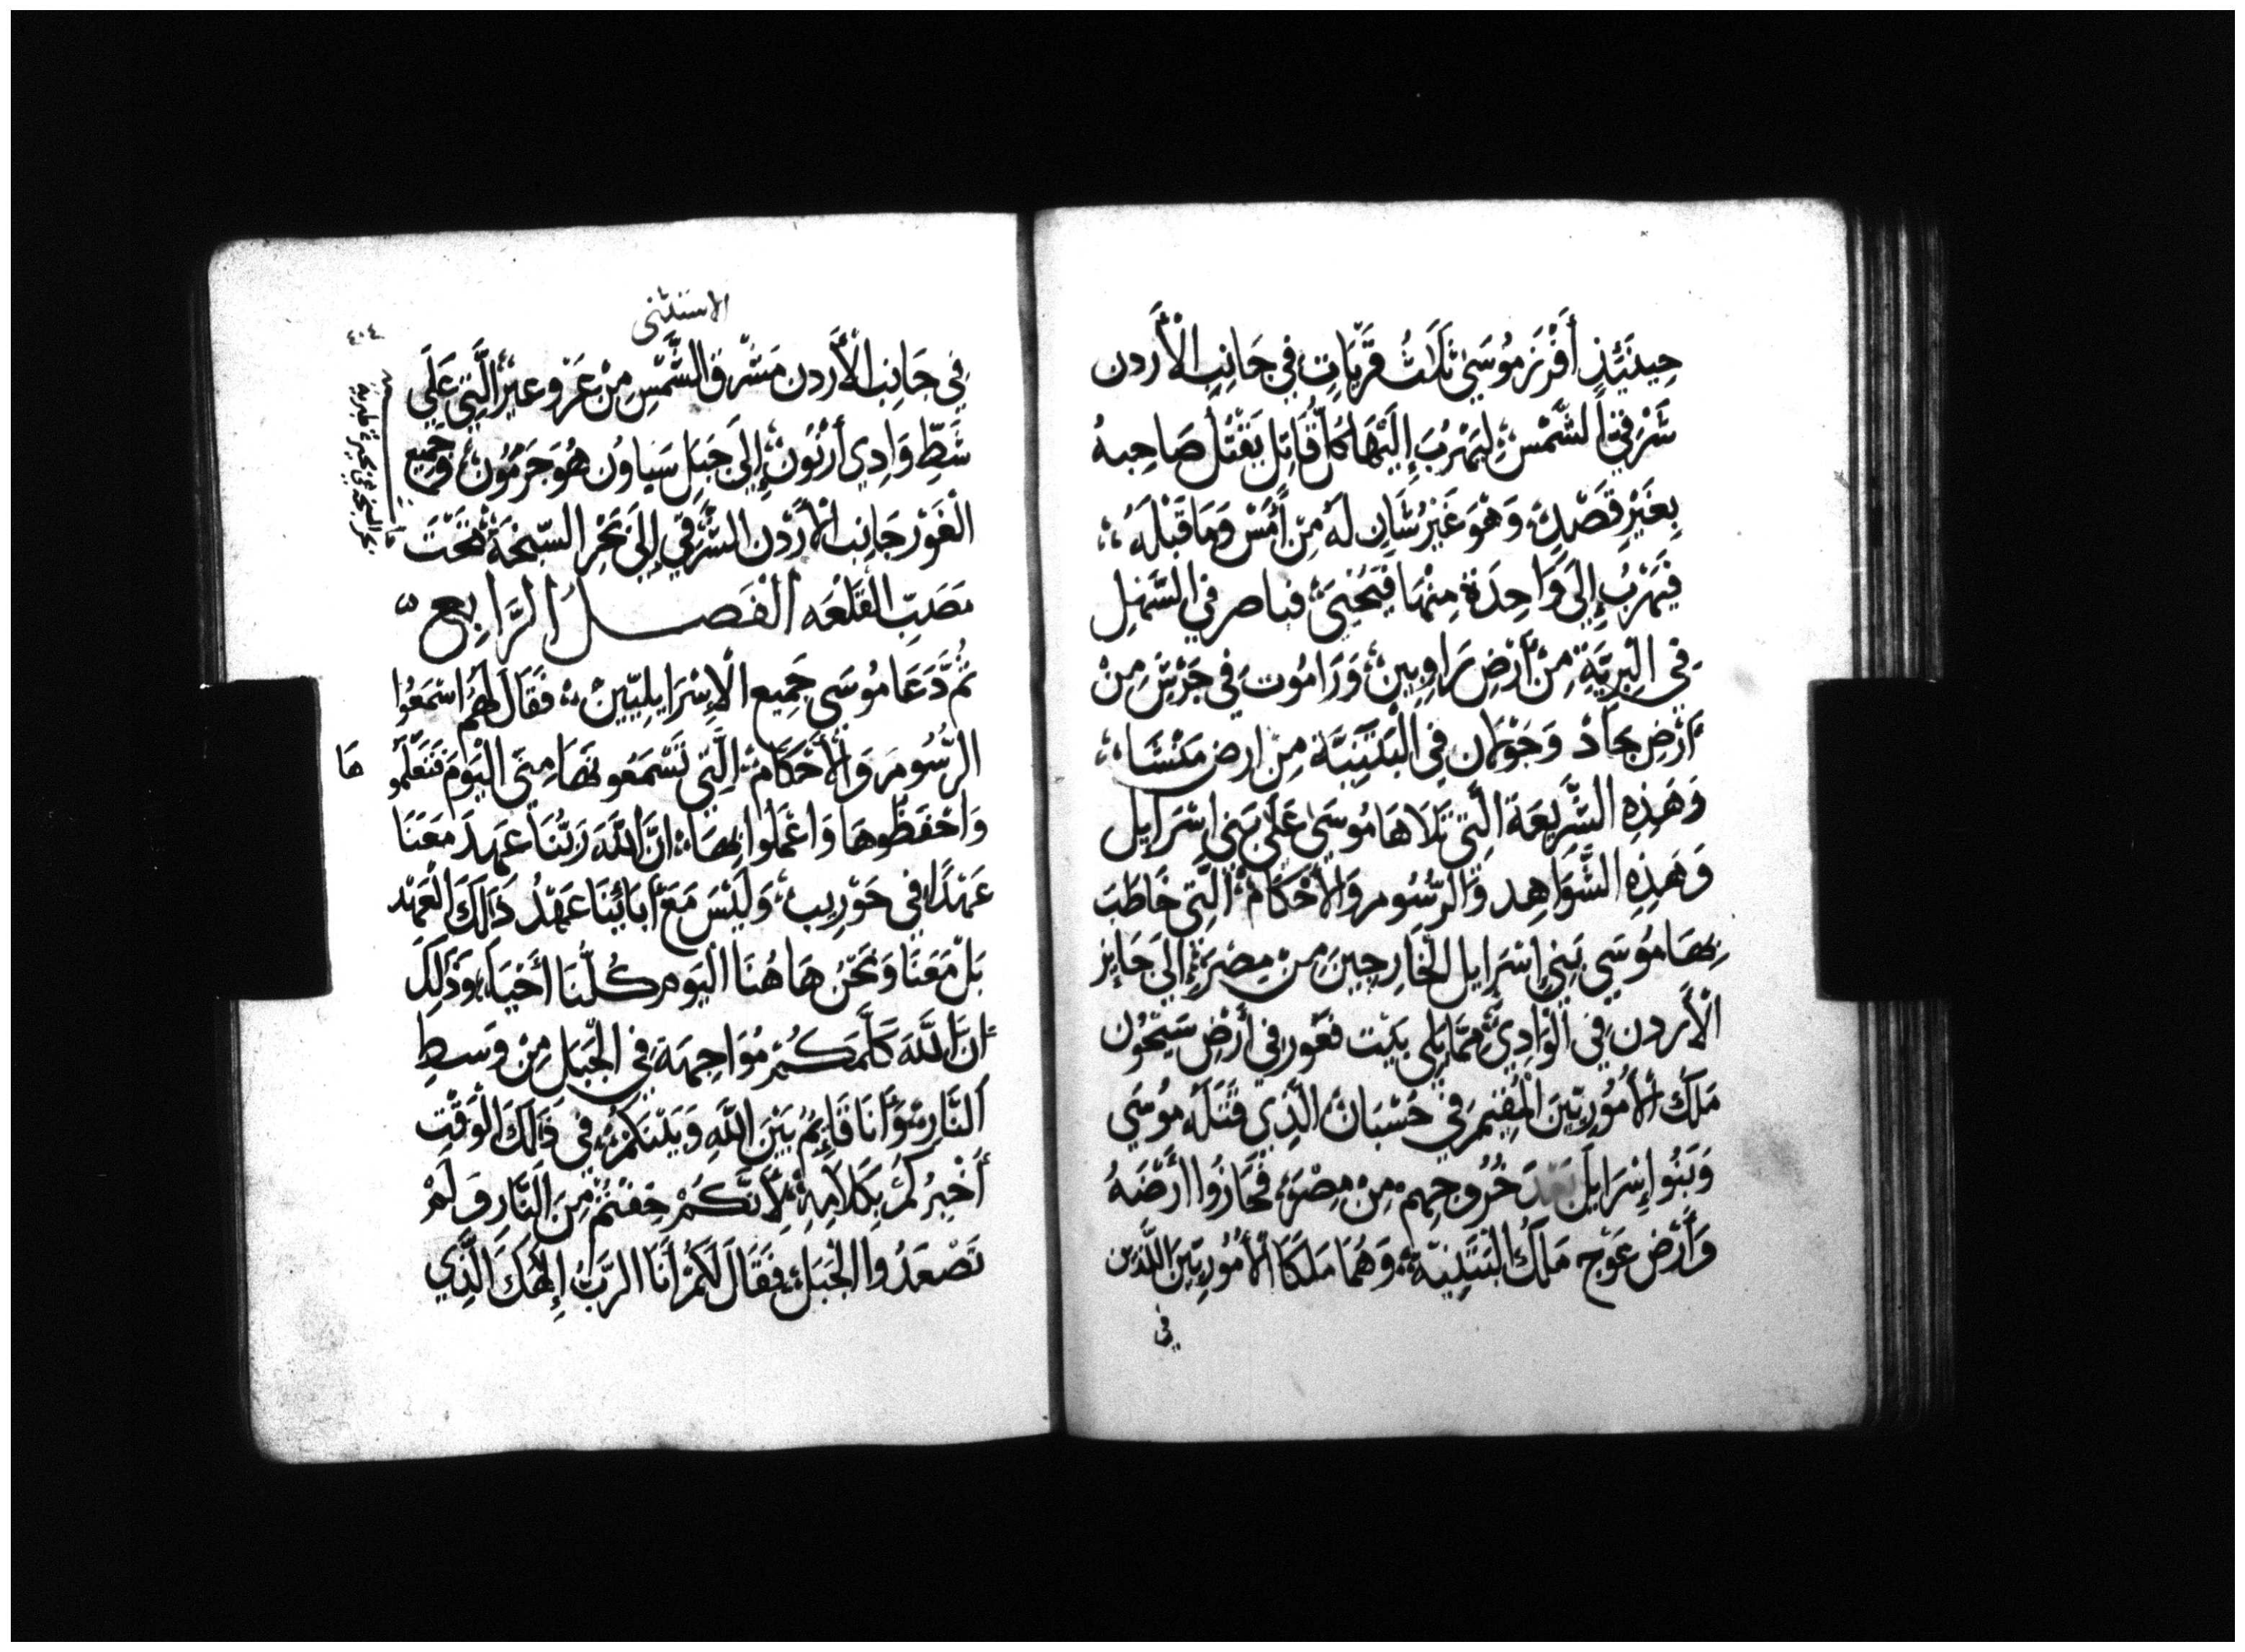 حِينَيِّذٍ أَفْرَزَ مُوسَىٰ ثَلَاثُ قَرْيَاتٍ فِي جَانِبِ الْأُرْدن
شَرْقِيّ الشَّمْسِ؛ لِيَهْرُبَ إِلَيْهَا كُلُّ قَاتِلٍ يَقْتُلُ صَاحِبهُ
بِغَيْرِ قَصْدٍ، وَهُوَ غَيْرُ شَانٍ لَهُ مِنْ أَمْسِ وَمَا قَبْلَهُ
فَيَهْرُبُ إِلَىٰ وَاحِدَةٍ مِنْهَا فَيَحْيَىٰ، فباصر فِي السَّهْلِ
فِي الْبَرِّيَّةِ مِنْ أَرْضِ رَاوبِين، وَرَامُوت فِي جَرَشَ مِنْ
أَرْضِ جَاد وَجَوْلَان فِي الْبَثَنِيَّة مِنْ ارض مَنَشَّا
وَهَذِهِ الشَّرِيعَة الَّتِي تَلَاهَا مُوسَىٰ عَلَىٰ بَنِي اسْرَايِل
وَهَذِهِ الشَّوَاهِد وَالرُّسُوم وَالْأَحْكَامُ الَّتِي خَاطَبَ
بِهَا مُوسَى بَنِي إِسْرَايل الْخَارِجِينَ مِنْ مِصْرَ، إِلَىٰ جَايِز
الْأُرْدن فِي الْوَادِي، مِمَّا يَلِي بَيْت فَغُور فِي أَرْضِ سَيْحُون
مَلِكُ الْأَمُورِيِّينَ الْمُقِيم فِي حُسْبَان الَّذِي قَتَلَهُ مُوسَي
وَبَنُو إِسْرَايلَ بَعْدَ خُرُوجِهِم مِنْ مِصْرَ، فَحَازُوا أَرْضَهُ
وَأَرْض عَوْج مَلِكُ الْبَثَنِيَّة، وَهُمَا مَلِكَا الْأَمُورِيِّينَ اللَّذَين
في
الاستثنى
٤٠٤
فِي جَانِبِ الْأُرْدن مَشْرِقِ الشَّمْسِ مِنْ عَرْوعير، الَّتِي عَلَى
شَطِّ وَادِي أَرْنُونَ، إِلَىٰ جَبَلِ سَياون هُوَ حَرْمُون، وَجَمِيع
الْغَوْرِ جَانِب الْأُرْدن الشَّرْقِي إِلَىٰ بَحْرِ السَّبْخَة، تَحْتَ
مَصَبِّ الْقَلْعَه الْفَصــلُ الرَّابِع
ثُمَّ دَعَا مُوسَي جَمِيع الْإِسْرَايلِيِّينَ، فَقَالَ لَهُمُ اسْمَعُوا
الرُّسُوم وَالْأَحْكَام، الَّتِي تَسْمَعُونَهَا مِنِّي الْيَوْمَ فَتَعَلَّمُو
هَا
وَاحْفَظُوهَا وَاعْمَلُوا بِهَا، انَّ اللَّهَ رَبُّنَا عَهِدَ مَعَنَا
عَهْدًا فِي حَوْرِيب، وَلَيْسَ مَعَ آبَائِنَا عَهِدُ ذَلِكَ الْعَهْد
بَلْ مَعَنَا وَنَحْنُ هَاهُنَا الْيَوم كُلُّنَا أَحْيَاء، وَذَلِكَ
انَّ اللَّهَ كَلَّمَكُمْ مُوَاجِهَة فِي الْجَبَلِ مِنْ وَسَطِ
النَّارِ، وَأَنَا قَائِمٌ بَيْنَ اللَّهِ وَبَيْنَكُمْ، فِي ذَلِكَ الْوَقْتِ
أُخْبِرُكُمْ بِكَلَامِهِ، لِأَنَّكُمْ خِفْتُمْ مِنَ النَّارِ وَلَمْ
تَصْعَدُوا الْجَبَل، فَقَالَ لَكُمْ أَنَا الرَّبُّ إِلَهُكَ الَّذِي